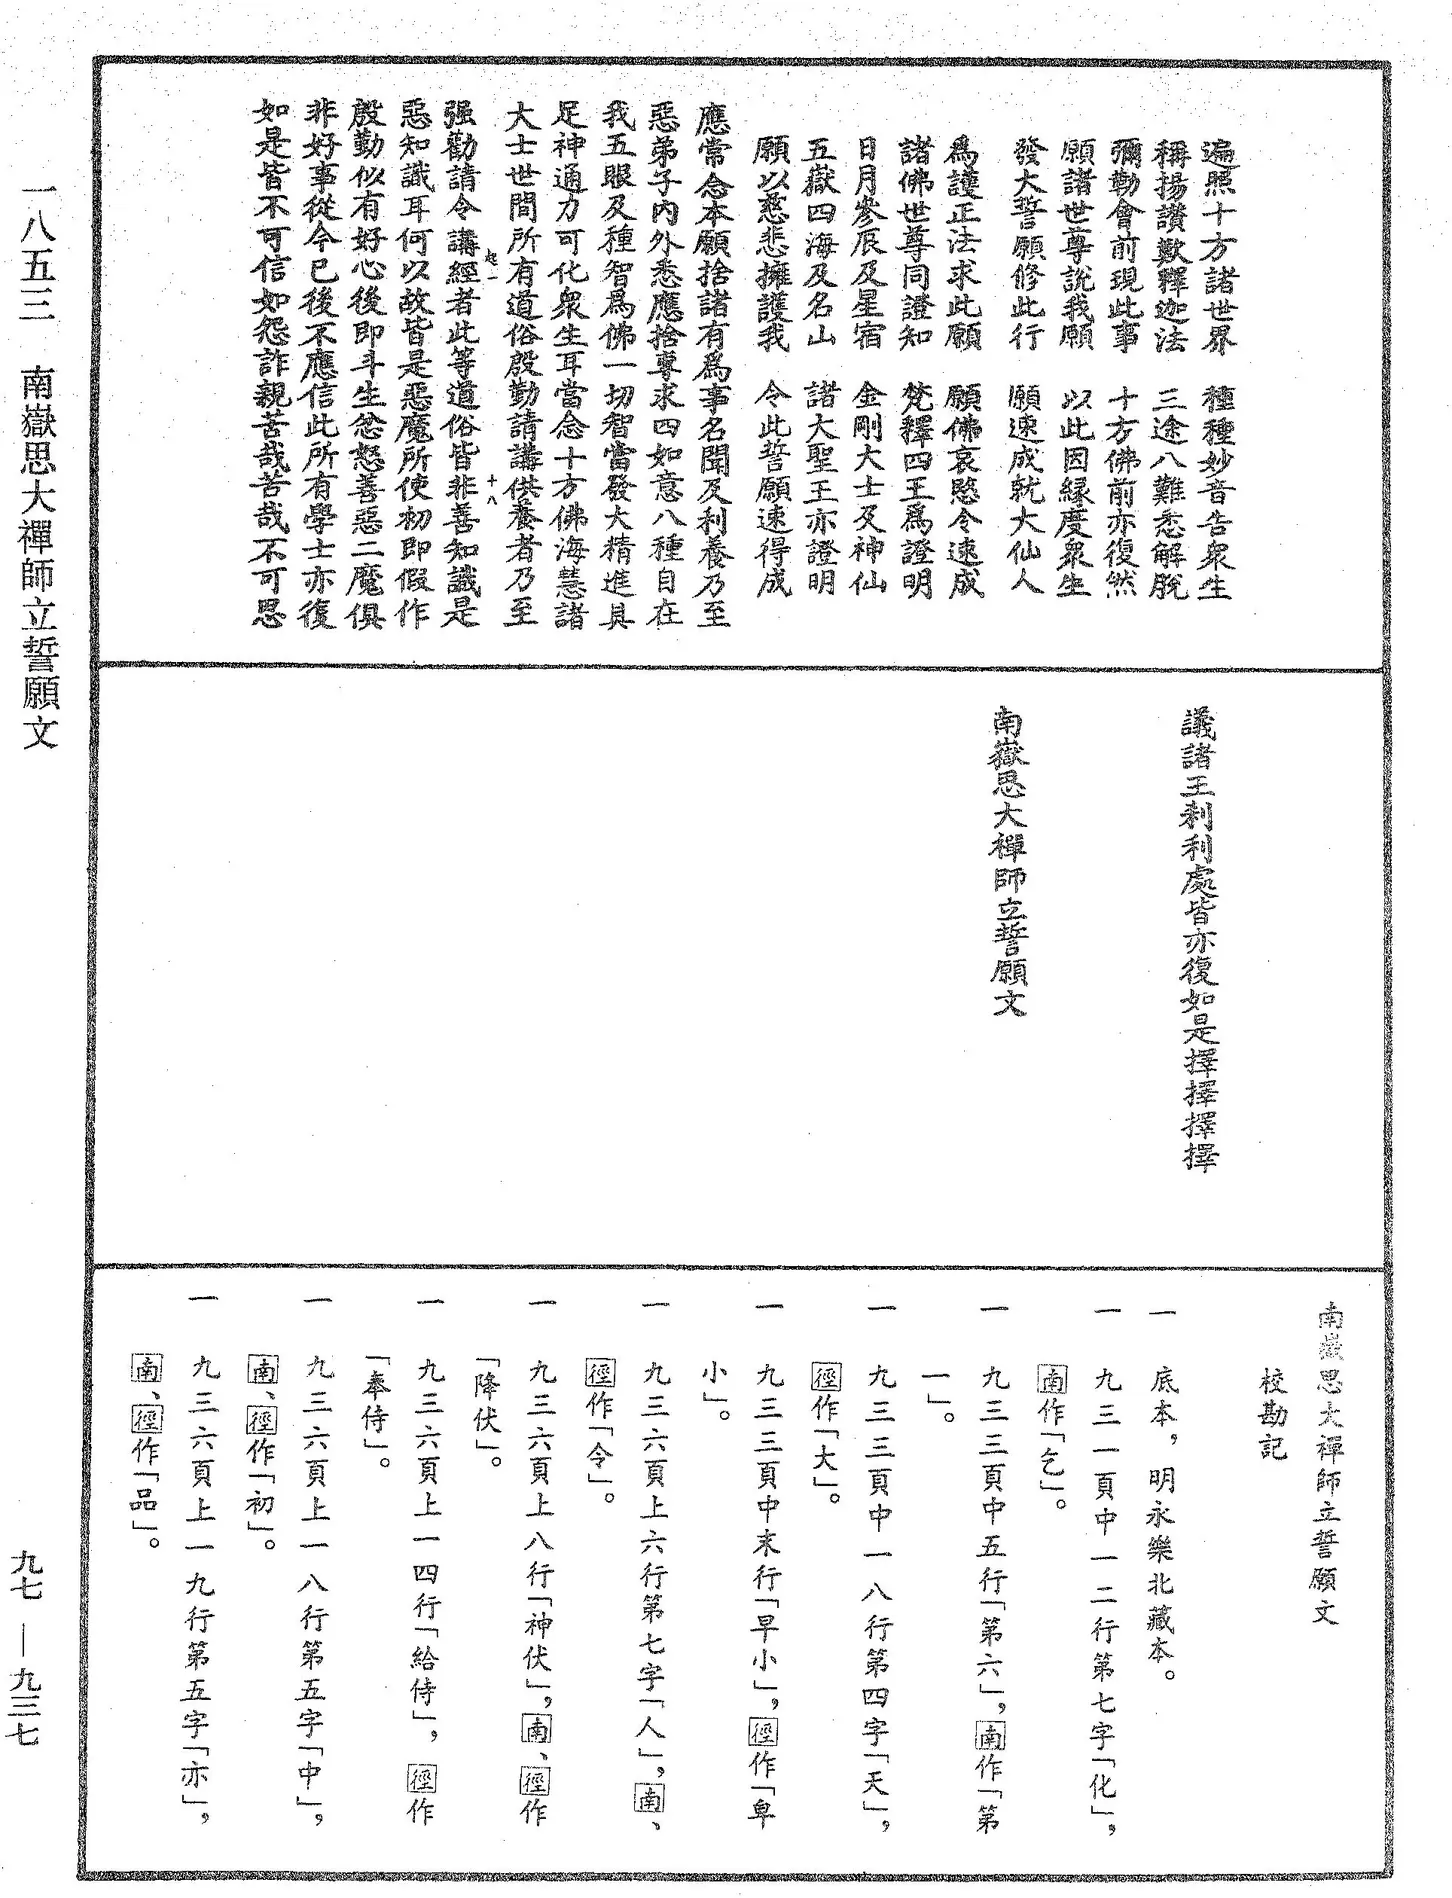 遍照十方諸世界　種種妙音告衆生
稱揚讚歎釋迦法　三途八難悉解脫
彌勒會前現此事　十方佛前亦復然
願諸世尊說我願　以此因緣度衆生
發大誓願修此行　願速成就大仙人
爲護正法求此願　願佛哀愍令速成
諸佛世尊同證知　梵釋四王爲證明
日月參辰及星宿　金剛大士及神仙
五嶽四海及名山　諸大聖王亦證明
願以慈悲擁護我　令此誓願速得成
應常念本願捨諸有爲事名聞及利養乃至
惡弟子內外悉應捨專求四如意八種自在
我五眼及種智爲佛一切智當發大精進具
足神通力可化衆生耳當念十方佛海慧諸
大士世間所有道俗殷勤請講供養者乃至
起一
十八
强勸請令講經者此等道俗皆非善知識是
惡知識耳何以故皆是惡魔所使初即假作
殷勤似有好心後即斗生忿怒善惡二魔俱
非好事從今已後不應信此所有學士亦復
如是皆不可信如怨詐親苦哉苦哉不可思
議諸王刹利處皆亦復如是擇擇擇擇
南嶽思大禪師立誓願文
南嶽思大禪師立誓願文
校勘記
一　底本，明永樂北藏本。
一　九三一頁中一二行第七字「化」，
南作「乞」。
一　九三三頁中五行「第六」，南作「第
一」。
一　九三三頁中一八行第四字「天」，
徑作「大」。
一　九三三頁中末行「早小」，徑作「卑
小」。
一　九三六頁上六行第七字「人」，南、
徑作「令」。
一　九三六頁上八行「神伏」，南、徑作
「降伏」。
一　九三六頁上一四行「給侍」，徑作
「奉侍」。
一　九三六頁上一八行第五字「中」，
南、徑作「初」。
一　九三六頁上一九行第五字「亦」，
南、徑作「品」。
一八五三　南嶽思大禪師立誓願文
九七—九三七